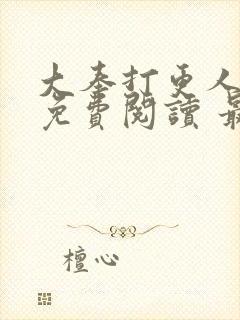 大奉打更人
免費閱讀 最
檀心